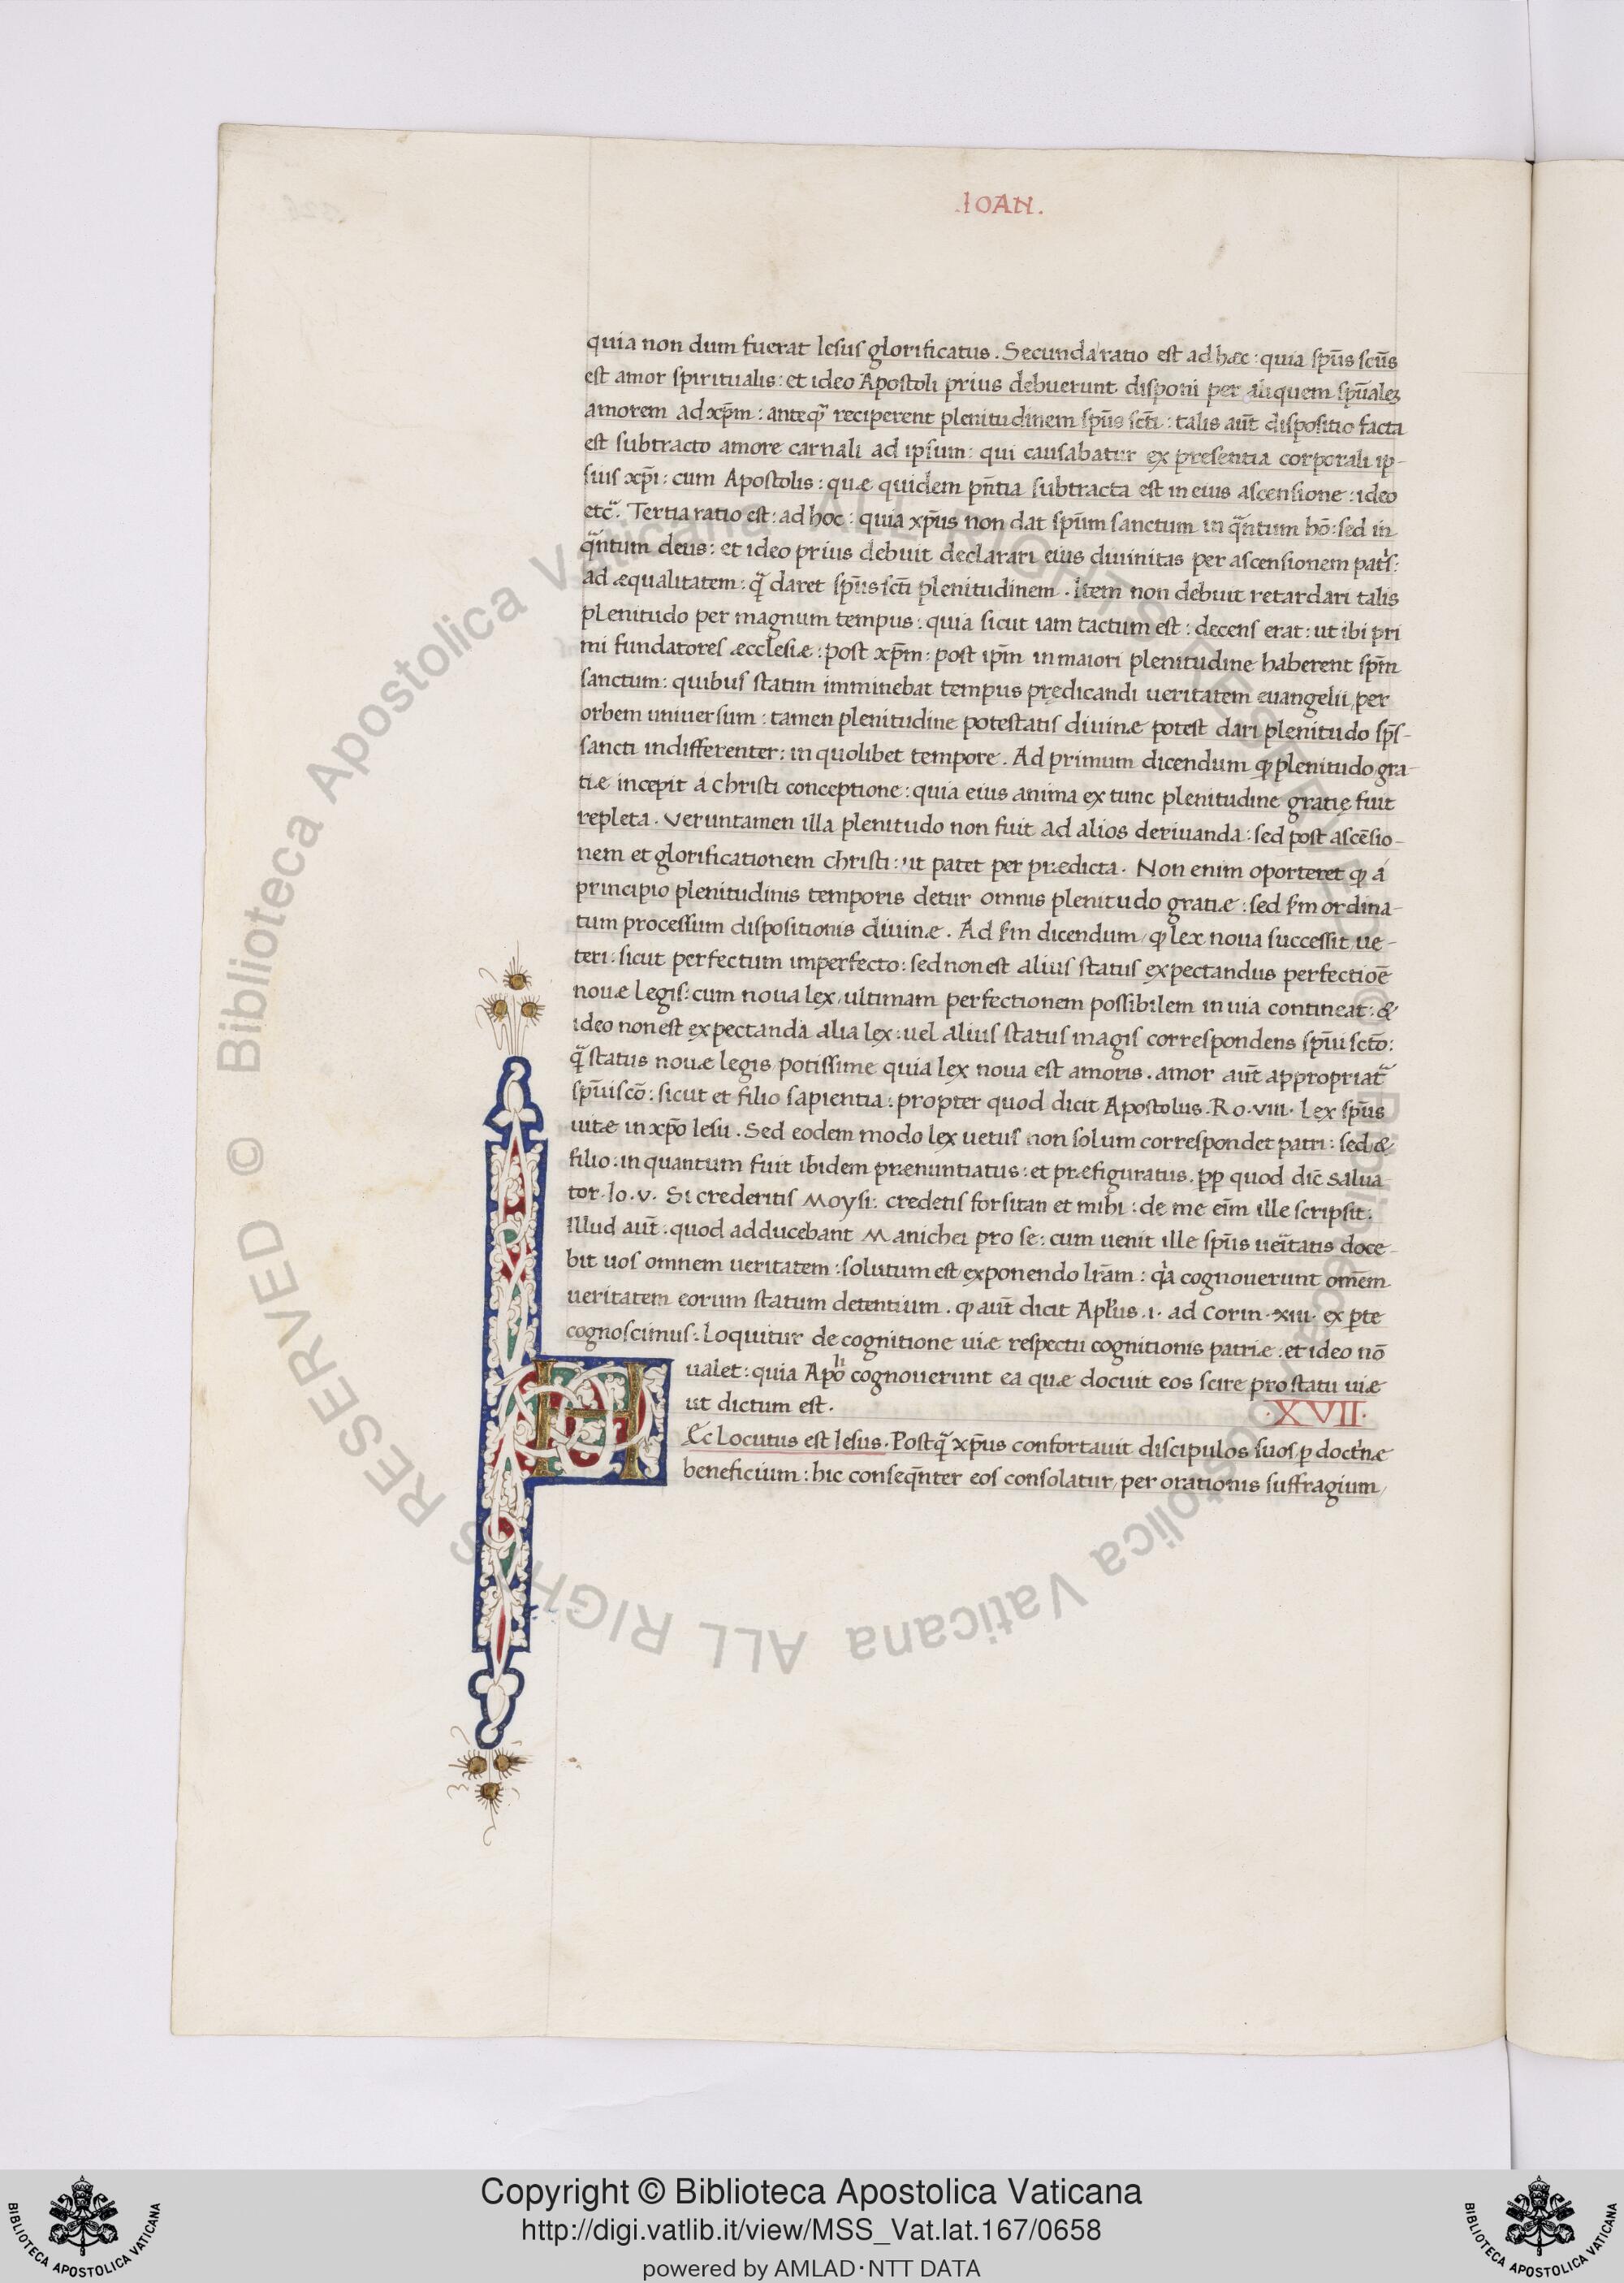 .IOAN.
quia non dum fuerat Iesus glorificatus. Secunda ratio est ad hæc: quia spūs scūs
est amor spiritualis: et ideo Apostoli prius debuerunt disponi per aliquem spūalez
amorem ad xp̄m: anteq̄ reciperent plenitudinem spūs scti: talis aūt dispositio facta
est subtracto amore carnali ad ipsum: qui causabatur ex presentia corporali ip-
sius xp̄i: cum Apostolis: quæ quidem pn̄tia subtracta est in eius ascensione: ideo
etc̄. Tertia ratio est: ad hoc: quia xp̄us non dat spūm sanctum in q̄ntum hō: sed in
q̄ntum deus: et ideo prius debuit declarari eius diuinitas per ascensionem patis:
ad æqualitatem: q̄ daret spūs scti plenitudinem. Item non debuit retardari talis
plenitudo per magnum tempus: quia sicut iam tactum est: decens erat: ut ibi pri
mi fundatores æcclesiæ: post xp̄m: post ip̄m in maiori plenitudine haberent sp̄m
sanctum: quibus statim imminebat tempus prędicandi ueritatem euangelii, per
orbem uniuersum: tamen plenitudine potestatis diuinæ potest dari plenitudo sp̄s-
sancti indifferenter: in quolibet tempore. Ad primum dicendum ꝙ plenitudo gra-
tiæ incepit á christi conceptione: quia eius anima ex tunc plenitudine gratię fuit
repleta. Veruntamen illa plenitudo non fuit ad alios deriuanda: sed post ascēsio-
nem et glorificationem christi: ut patet per prædicta. Non enim oporteret ꝙ á
principio plenitudinis temporis detur omnis plenitudo gratiæ: sed sm ordina-
tum processum dispositionis diuinæ. Ad sm dicendum, ꝙ lex noua successit ue-
teri: sicut perfectum imperfecto: sed non est alius status expectandus perfectioē
nouæ legis: cum noua lex, ultimam perfectionem possibilem in uia contineat: &
ideo non est expectanda alia lex: uel alius status magis correspondens spūi sctō:
q̄ status nouæ legis, potissime quia lex noua est amoris. amor aūt appropriat̄
spūiscō: sicut et filio sapientia: propter quod dicit Apostolus. Ro. viii. Lex spūs
uitæ in xp̄o Iesu. Sed eodem modo lex uetus non solum correspondet patri: sed &
filio: in quantum fuit ibidem prænuntiatus: et præfiguratus. pp quod dic̄ salua
tor. Io. v. Si crederitis Moysi: credetis forsitan et mihi: de me eīm ille scripsit:
illud aūt: quod adducebant Manichei pro se: cum uenit ille spūs ueītatis doce-
bit uos omnem ueritatem: solutum est exponendo lr̄am: qa cognouerunt omēm
ueritatem eorum statum detentium. ꝙ aūt dicit Aplus. i. ad Corin. xiii. ex pte
cognoscimus: Loquitur de cognitione uiæ respectu cognitionis patriæ: et ideo nō
ualet: quia Apōli cognouerunt ea quæ docuit eos scire pro statu uiæ
ut dictum est.
.XVII.
HÆc Locutus est Iesus. Postq̄ xp̄us confortauit discipulos suos, p doctnæ
beneficium: hic conseq̄nter eos consolatur, per orationis suffragium,
Copyright © Biblioteca Apostolica Vaticana
http://digi.vatlib.it/view/MSS_Vat.lat.167/0658
powered by AMLAD·NTT DATA
BIBLIOTECA APOSTOLICA VATICANA
BIBLIOTECA APOSTOLICA VATICANA
© Biblioteca Apostolica Vaticana ALL RIGHTS RESERVED © Biblioteca Apostolica Vaticana ALL RIGHTS RESERVED